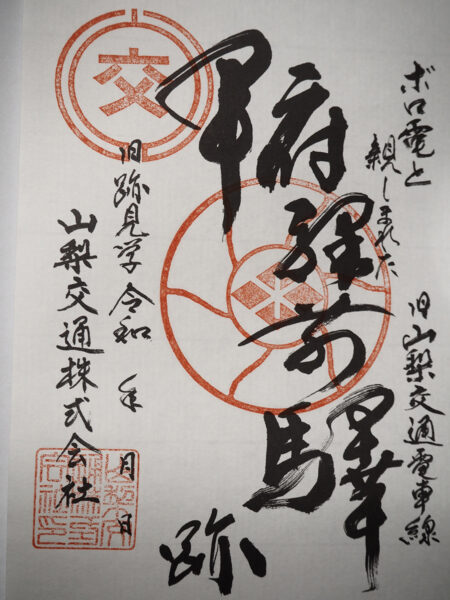 ボロ電と
親しまれた
旧山梨交通電車線
甲府驛前驛跡
交
旧跡見学 令和 年 月 日
山梨交通株式会社